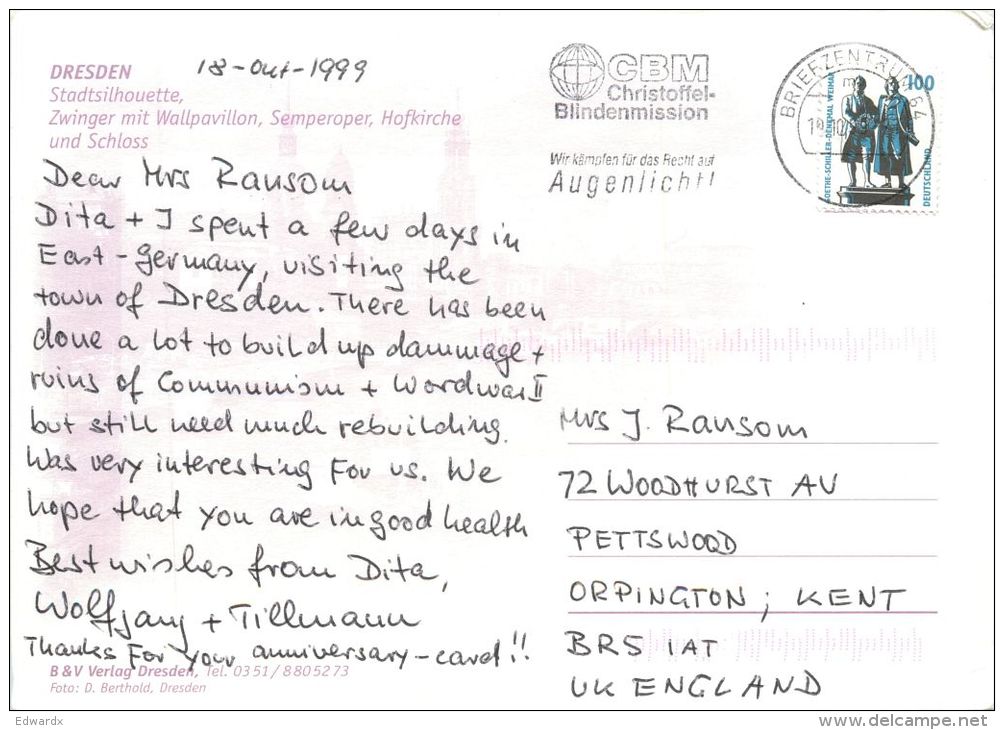 DRESDEN
Stadtsilhouette,
Zwinger mit Wallpavillon, Semperoper, Hofkirche
und Schloss
18-Okt-1999
Dear Mrs Ransom
Dita + I spent a few days in
East-Germany, visiting the
town of Dresden. There has been
done a lot to build up dammage +
ruins of Communism + Wordwar II
but still need much rebuilding.
Was very interesting for us. We
hope that you are in good health
Best wishes from Dita,
Wolfgang + Tillmann
Thanks for your anniversary-card!!
B & V Verlag Dresden, Tel. 0351/8805273
Foto: D. Berthold, Dresden
CBM
Christoffel-
Blindenmission
Wir kämpfen für das Recht auf
Augenlicht!
BRIEFZENTRUM 64
100
GOETHE-SCHILLER-DENKMAL WEIMAR
DEUTSCHLAND
Mrs J. Ransom
72 WOODHURST AV
PETTSWOOD
ORPINGTON; KENT
BR5 1AT
UK ENGLAND
Edwardx
www.delcampe.net